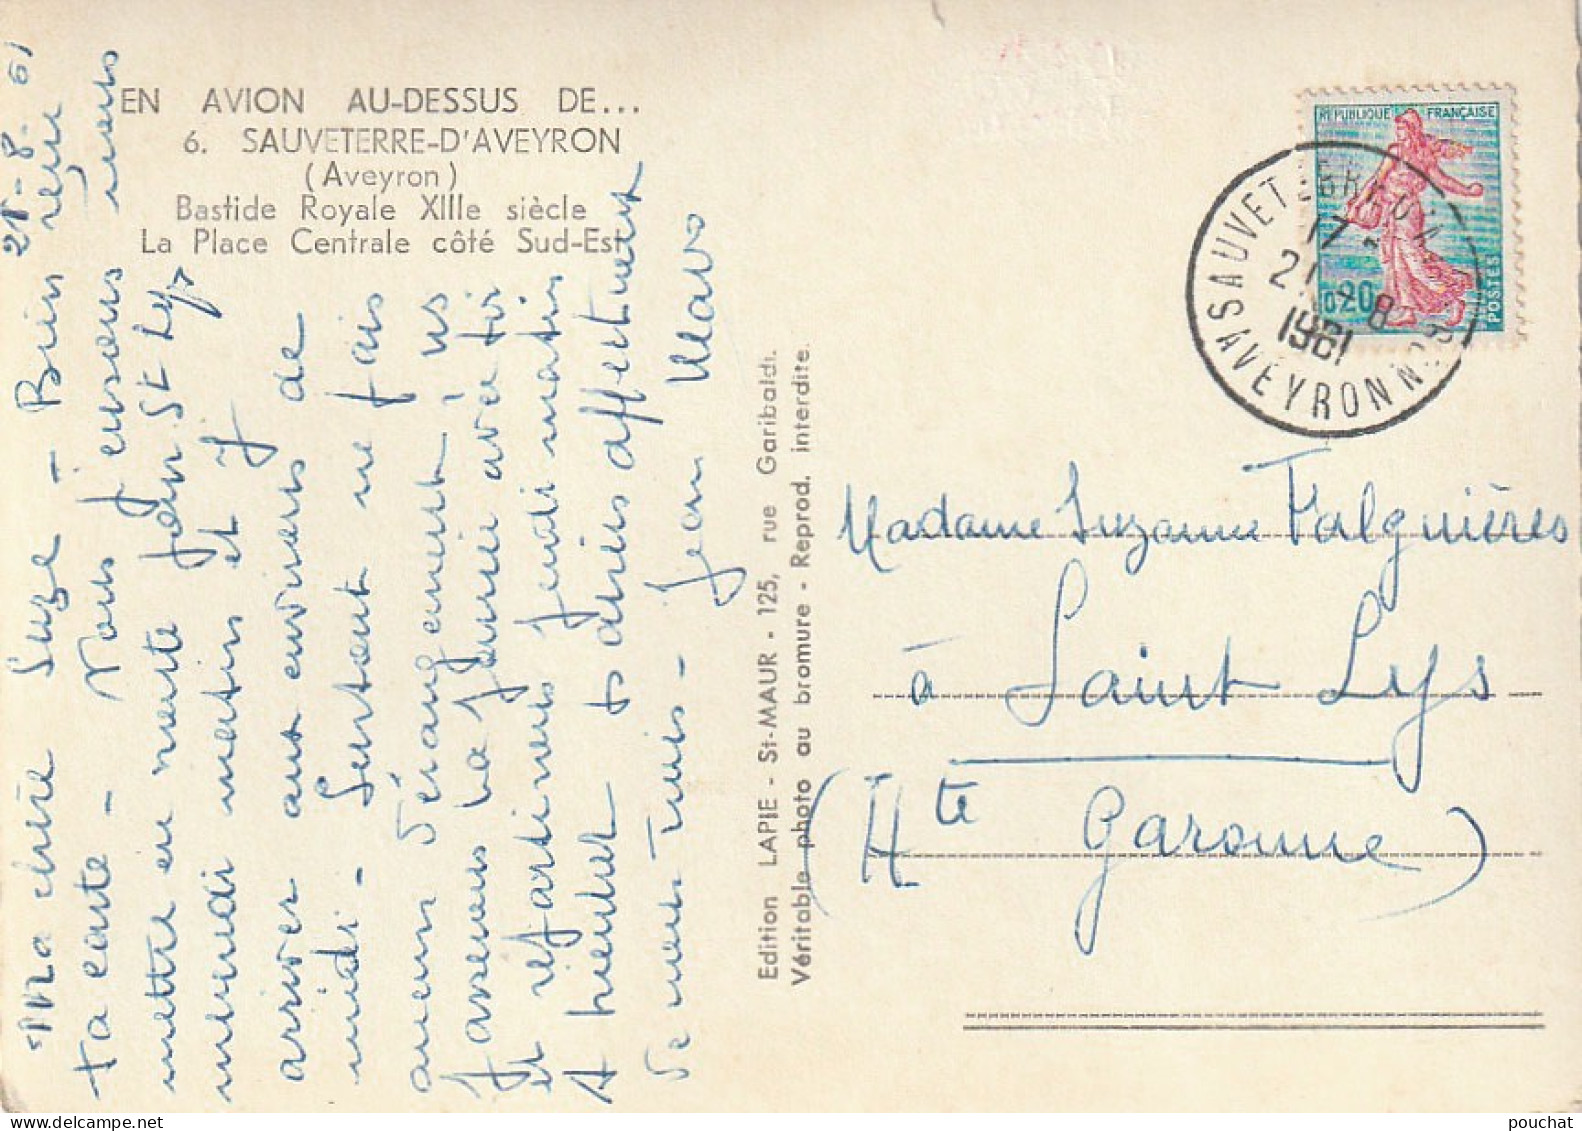 EN AVION AU-DESSUS DE...
6. SAUVETERRE-D'AVEYRON
(Aveyron)
Bastide Royale XIIIe siècle
La Place Centrale côté Sud-Est
21-8-61
Ma chère Suze - Bien reçu
ta carte - Nous pensons nous
mettre en route pour St Lys
mercredi matin et y
arriver aux environs de
midi - Surtout ne fais
aucun dérangement, ns
passerons la journée avec toi
et repartirons jeudi matin
A bientôt to amies affectueuses
de nous trois - Jean Maro
Edition LAPIE - St-MAUR - 125, rue Garibaldi.
Véritable photo au bromure - Reprod. interdite.
REPUBLIQUE FRANÇAISE
0,20
POSTES
SAUVETERRE D'AVEYRON
17
21 -8
1961
AVEYRON
Madame Suzanne Falguières
à Saint Lys
(Hte Garonne)
pouchat